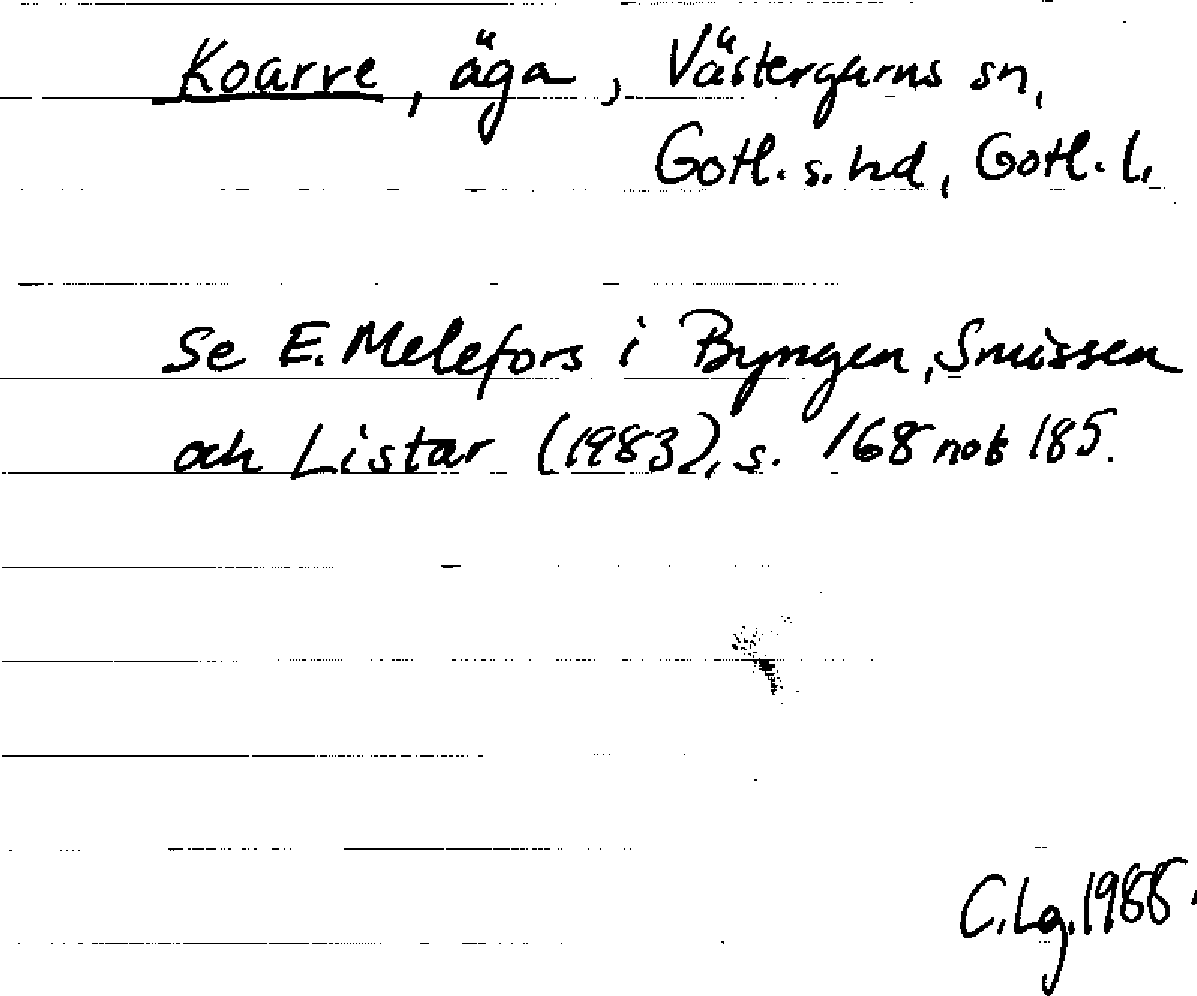 Koarve, äga, Västergarns sn,
Gotl. s. hd, Gotl. l.
Se E. Melefors i Byngen, Smissen
och Listar (1983), s. 168 not 185.
C. Lg. 1988.